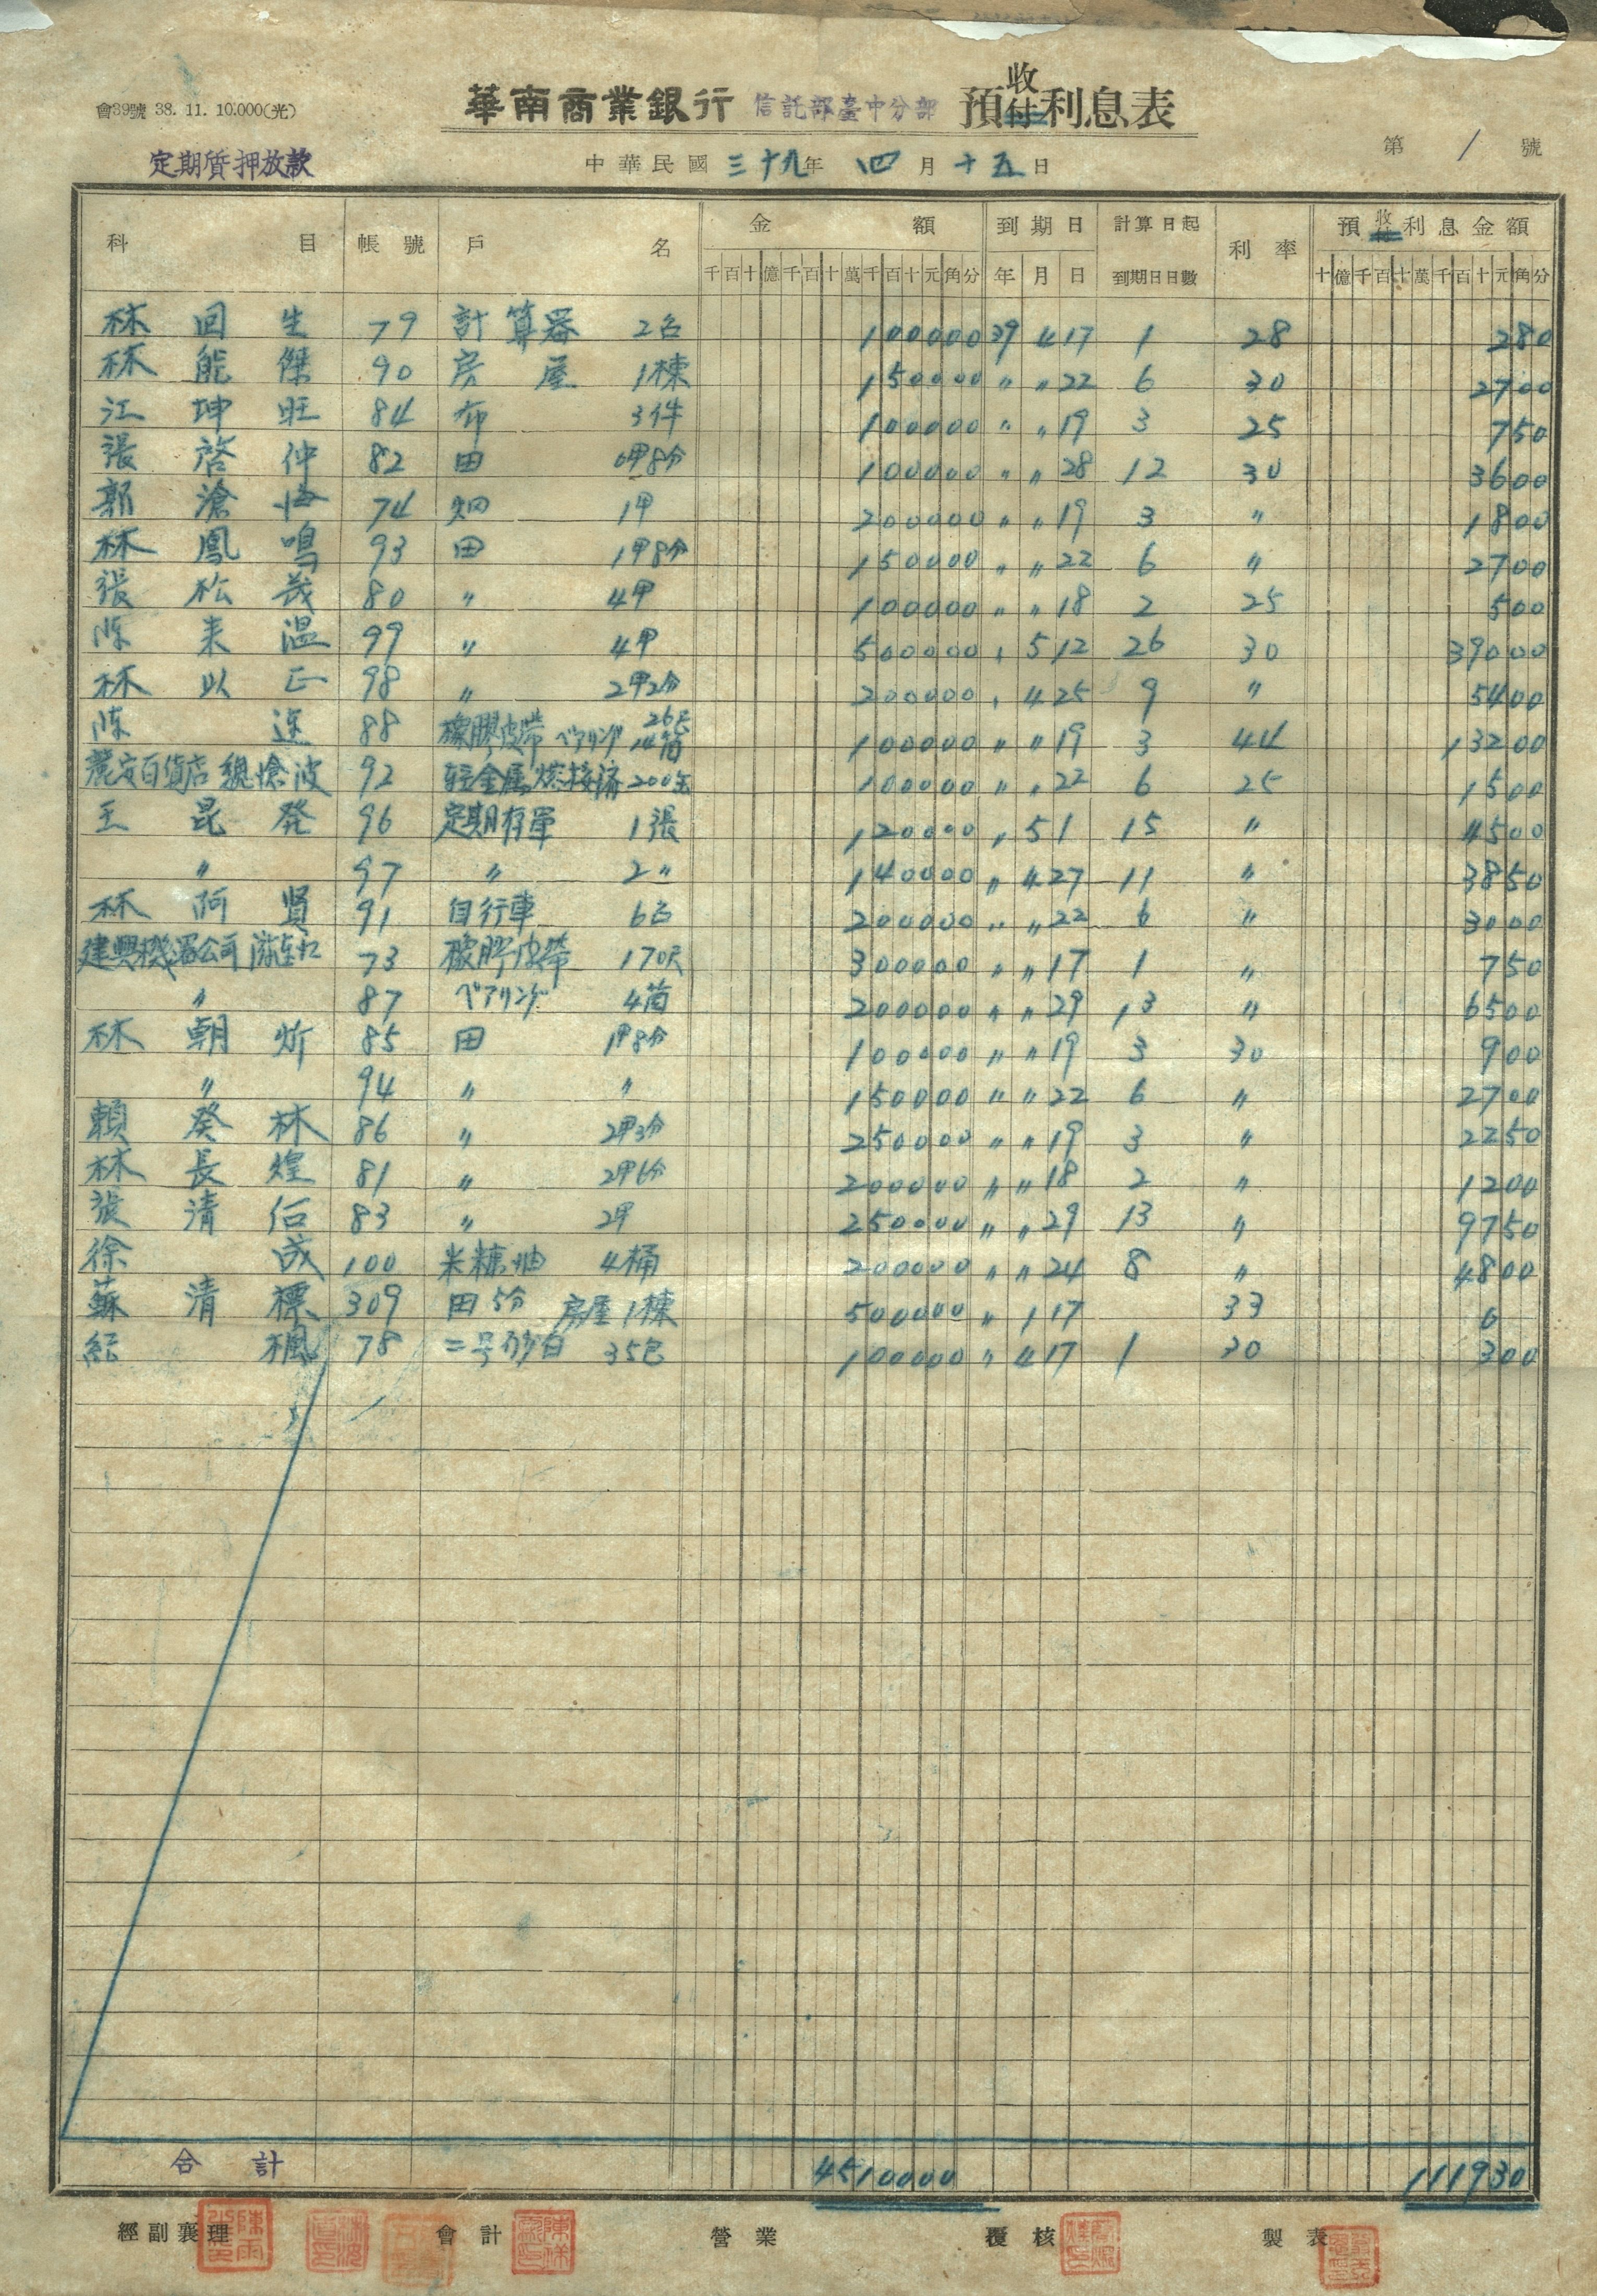 會39號 38. 11. 10.000(光)
華南商業銀行 信託部臺中分部 預收付利息表
定期質押放款
中華民國三十九年 四月十五日
第 1 號
科目 帳號 戶名 金額 到期日 計算日起到期日日數 利率 預收付利息金額
千百十億千百十萬千百十元角分 年 月 日 十億千百十萬千百十元角分
林回生 79 計算器 2台 100000 39 4 17 1 28 280
林熊傑 90 房屋 1棟 150000 〃 〃 22 6 30 2700
江坤旺 84 布 3件 100000 〃 〃 19 3 25 750
張啓仲 82 田 0甲8分 100000 〃 〃 28 12 30 3600
郭滄海 74 畑 1甲 200000 〃 〃 19 3 〃 1800
林鳳鳴 93 田 1甲8分 150000 〃 〃 22 6 〃 2700
張松茂 80 〃 4甲 100000 〃 〃 18 2 25 500
陳来温 99 〃 4甲 500000 〃 5 12 26 30 39000
林以正 98 〃 2甲2分 200000 〃 4 25 9 〃 5400
陳 88 橡膠皮帶 ベアリング 26尺 箇 100000 〃 〃 19 3 44 13200
百貨店 波 92 輕金属 200 100000 〃 〃 22 6 25 1500
王昆發 96 定期存單 1張 120000 〃 5 1 15 〃 4500
〃 97 〃 2〃 140000 〃 4 27 11 〃 3850
林阿賢 91 自行車 6台 200000 〃 〃 22 6 〃 3000
建興機器公司 73 橡膠皮帶 170尺 300000 〃 〃 17 1 〃 750
〃 87 ベアリング 4箇 200000 〃 〃 29 13 〃 6500
林朝炘 85 田 1甲8分 100000 〃 〃 19 3 30 900
〃 94 〃 〃 150000 〃 〃 22 6 〃 2700
賴癸林 86 〃 2甲3分 250000 〃 〃 19 3 〃 2250
林長煌 81 〃 2甲6分 200000 〃 〃 18 2 〃 1200
張清 83 〃 2甲 250000 〃 〃 29 13 〃 9750
徐成 100 米糠油 4桶 200000 〃 〃 24 8 〃 4800
蘇清標 309 田5分 房屋1棟 500000 〃 1 17 33 0
紀楓 78 二号砂白 35包 100000 〃 4 17 1 30 300
合計 4510000 111930
經副襄理 會計 營業 覆核 製表